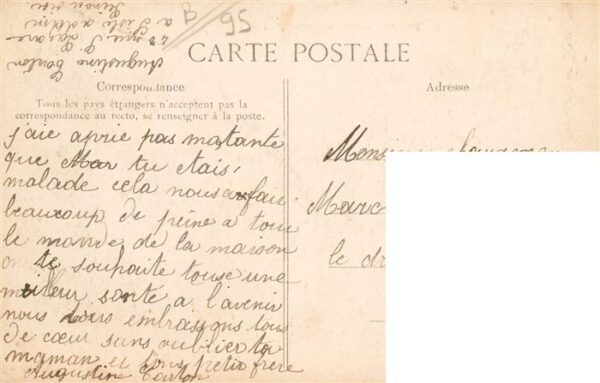 B/95
Augustine Torlon
23 rue P Lazare
a Isle adam
Seine oise
CARTE POSTALE
Correspondance
Tous les pays étrangers n'acceptent pas la
correspondance au recto, se renseigner à la poste.
j'aie aprie pas ma tante
que Mar tu etais
malade cela nous a fai
beaucoup de peine a tou
le monde de la maison
on te souhaite touse une
meilleur santé a l'avenir
nous vous embrassons tous
de cœur sans oublier ta
maman et tous petit frère
Augustine Torlon
Adresse
Monsieur
Marc
le dr